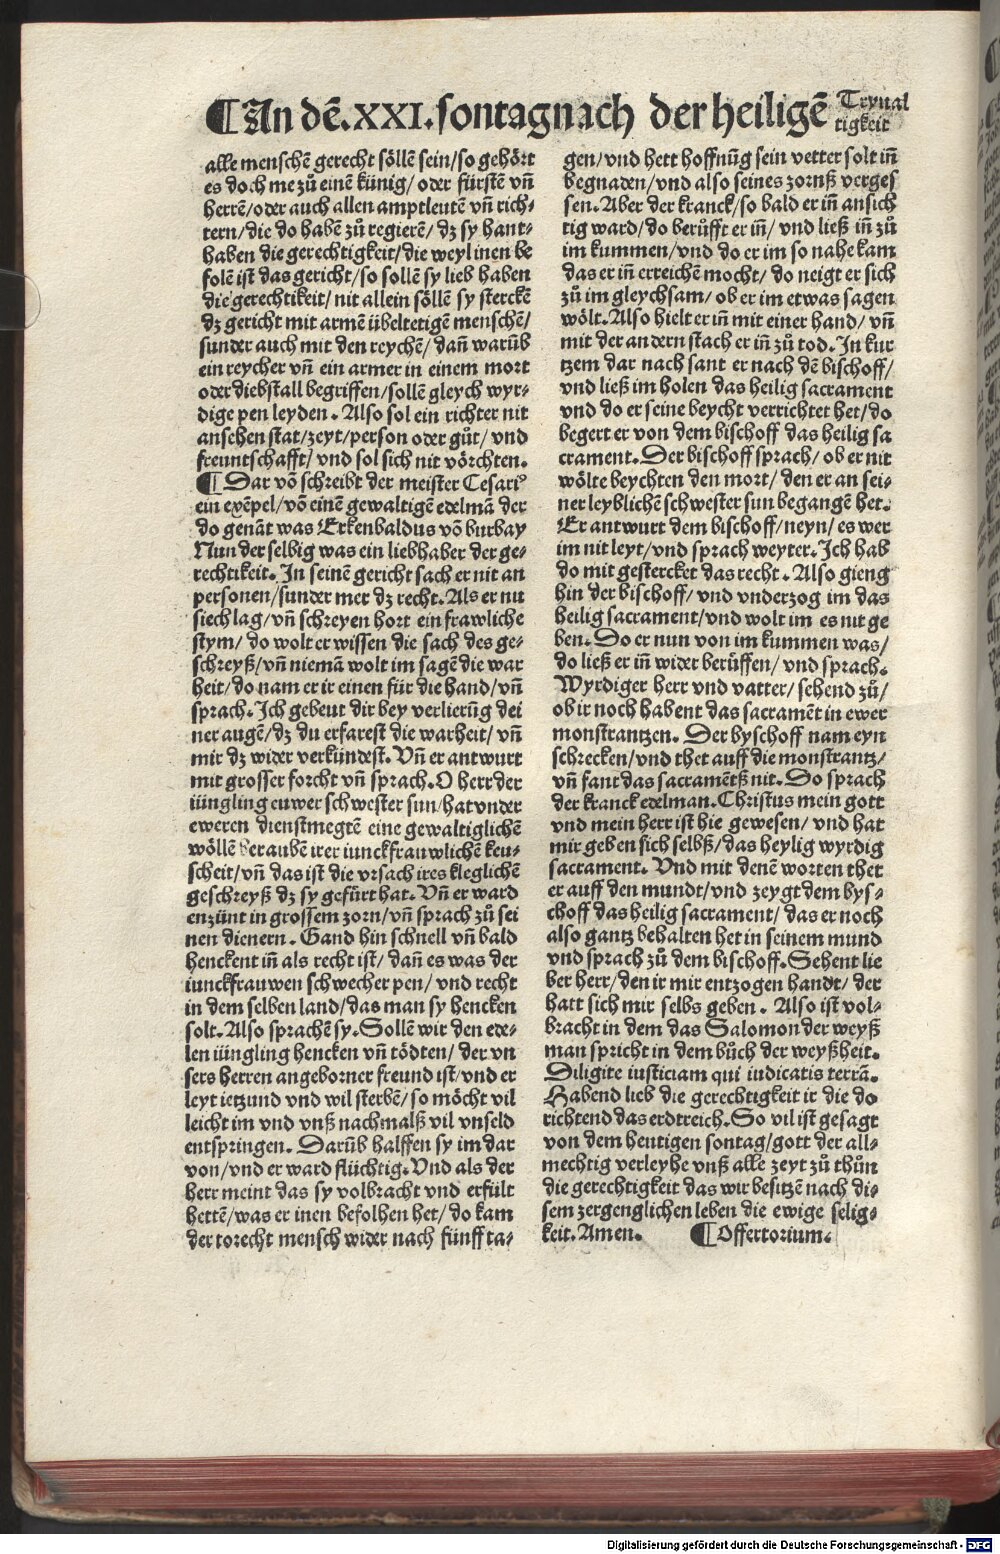 ¶ An dē.XXI.sontag nach der heiligē Tryual
tigkeit
alle menschē gerecht söllē sein/so gehört
es doch me zů einē künig/ oder fürstē vñ
herrē/oder auch allen amptleutē vñ rich⸗
tern/die do habē zů regierē/ dz sy hant⸗
haben die gerechtigkeit/die weyl inen be
folē ist das gericht/so sollē sy lieb haben
die gerechtikeit/nit allein söllē sy sterckē
dz gericht mit armē übeltetigē menschē/
sunder auch mit den reychē/ dañ warūb
ein reycher vñ ein armer in einem mort
oder diebstall begriffen/sollē gleych wyr⸗
dige pen leyden. Also sol ein richter nit
ansehen stat/zeyt/person oder gůt/ vnd
freuntschafft/ vnd sol sich nit vörchten.
¶ Dar vō schreibt der meister Cesariꝰ
ein exēpel/vō einē gewaltigē edelmā der
do genāt was Erkenbaldus vō burbay
Nun der selbig was ein liebhaber der ge⸗
rechtikeit. In seinē gericht sach er nit an
personen/sunder mer dz recht. Als er nu
siech lag/vñ schreyen hort ein frawliche
stym/ do wolt er wissen die sach des ge⸗
schreyß/vñ niemā wolt im sagē die war
heit/do nam er ir einen für die hand/vñ
sprach. Ich gebeut dir bey verlierūg dei
ner augē/dz du erfarest die warheit/ vñ
mir dz wider verkündest. Vñ er antwurt
mit grosser forcht vñ sprach. O herr der
iüngling euwer schwester sun/hat vnder
eweren dienstmegtē eine gewaltiglichē
wöllē berauben irer iunckfrauwlichē keu⸗
scheit/vñ das ist die vrsach ires kleglichē
geschreyß dz sy gefürt hat. Vñ er ward
enzünt in grossem zorn/vñ sprach zů sei
nen dienern. Gand hin schnell vñ bald
henckent iñ als recht ist/ dañ es was der
iunckfrauwen schwecher pen/ vnd recht
in dem selben land/das man sy hencken
solt. Also sprachē sy. Sollē wir den ede⸗
len iüngling hencken vñ tödten/ der vn
sers herren angeborner freund ist/vnd er
leyt ietzund vnd wil sterbē/so möcht vil
leicht im vnd vnß nachmalß vil vnseld
entspringen. Darūb halffen sy im dar
von/vnd er ward flüchtig. Vnd als der
herr meint das sy volbracht vnd erfült
hettē/was er inen befolhen het/ do kam
der torecht mensch wider nach fünff ta⸗
gen/vnd hett hoffnūg sein vetter solt iñ
begnaden/vnd also seines zornß verges
sen. Aber der kranck/so bald er iñ ansich
tig ward/do berüfft er iñ/ vnd ließ iñ zů
im kummen/vnd do er im so nahe kam
das er iñ erreichē mocht/ do neigt er sich
zů im gleychsam/ ob er im etwas sagen
wölt. Also hielt er iñ mit einer hand/ vñ
mit der andern stach er iñ zů tod. In kur
tzem dar nach sant er nach dē bischoff/
vnd ließ im holen das heilig sacrament
vnd do er seine beycht verrichtet het/do
begert er von dem bischoff das heilig sa
crament. Der bischoff sprach/ ob er nit
wölte beychten den mort/ den er an sei⸗
ner leyblichē schwester sun begangē het.
Er antwurt dem bischoff/neyn/ es wer
im nit leyt/vnd sprach weyter. Ich hab
do mit gestercket das recht. Also gieng
hin der bischoff/ vnd vnderzog im das
heilig sacrament/vnd wolt im es nit ge
ben. Do er nun von im kummen was/
do ließ er iñ wider berüffen/ vnd sprach.
Wyrdiger herr vnd vatter/ sehend zů/
ob ir noch habent das sacramēt in ewer
monstrantzen. Der byschoff nam eyn
schrecken/ vnd thet auff die monstrantz/
vñ fant das sacramētß nit. Do sprach
der kranck edelman. Christus mein gott
vnd mein herr ist hie gewesen/ vnd hat
mir geben sich selbß/das heylig wyrdig
sacrament. Vnd mit denē worten thet
er auff den mundt/vnd zeygt dem bys⸗
choff das heilig sacrament/ das er noch
also gantz behalten het in seinem mund
vnd sprach zů dem bischoff. Sehent lie
ber herr/den ir mir entzogen handt/ der
hatt sich mir selbs geben. Also ist vol⸗
bracht in dem das Salomon der weyß
man spricht in dem bůch der weyßheit.
Diligite iusticiam qui iudicatis terrā.
Habend lieb die gerechtigkeit ir die do
richtend das erdtreich. So vil ist gesagt
von dem heutigen sontag/gott der all⸗
mechtig verleyhe vnß alle zeyt zů thůn
die gerechtigkeit das wir besitzē nach di⸗
sem zergenglichen leben die ewige selig⸗
keit. Amen. ¶ Offertorium.
Digitalisierung gefördert durch die Deutsche Forschungsgemeinschaft - DFG